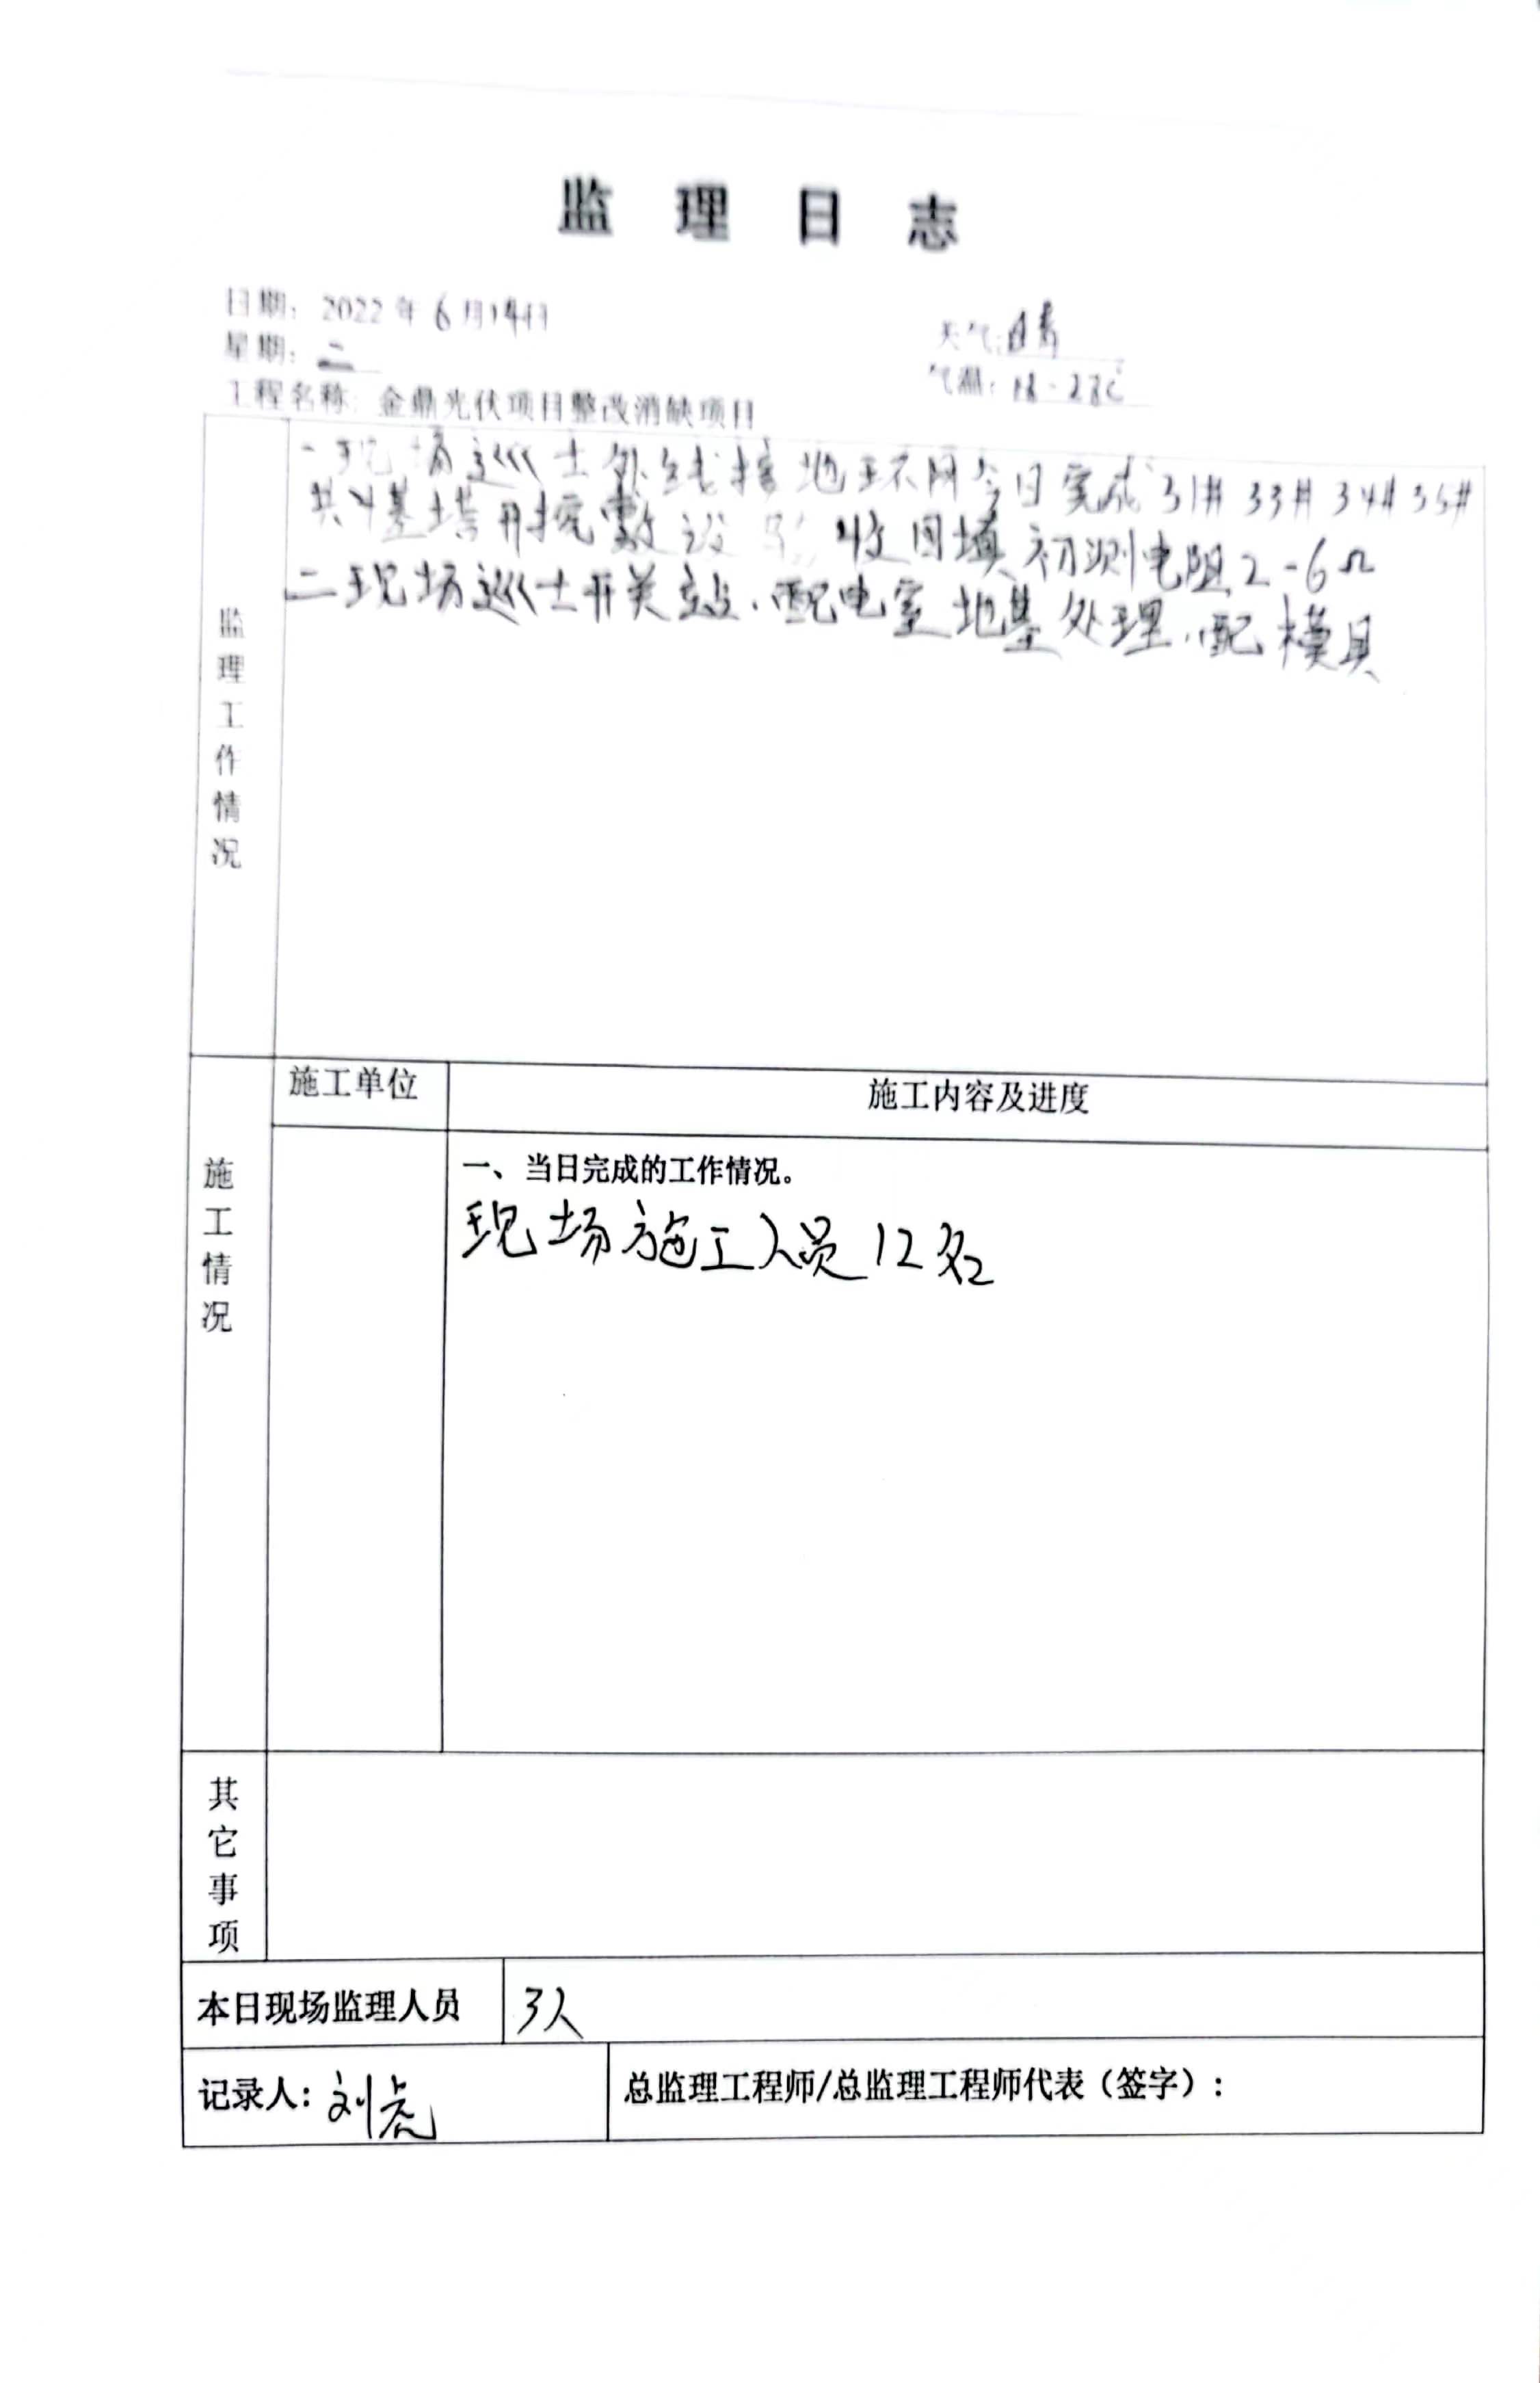 监 理 日 志
日期: 2022年6月14日
天气: 晴
星期: 二
气温: 18-28℃
工程名称: 金鼎光伏项目整改消缺项目
监理工作情况
一现场巡士外线接地环网今日完成31# 33# 34# 35#
共4基塔开挖敷设 收回填初测电阻2-6Ω
二现场巡士开关站.配电室地基处理.配模具
施工单位
施工内容及进度
施工情况
一、当日完成的工作情况。
现场施工人员12名
其它事项
本日现场监理人员
3人
记录人: 刘虎
总监理工程师/总监理工程师代表（签字）: